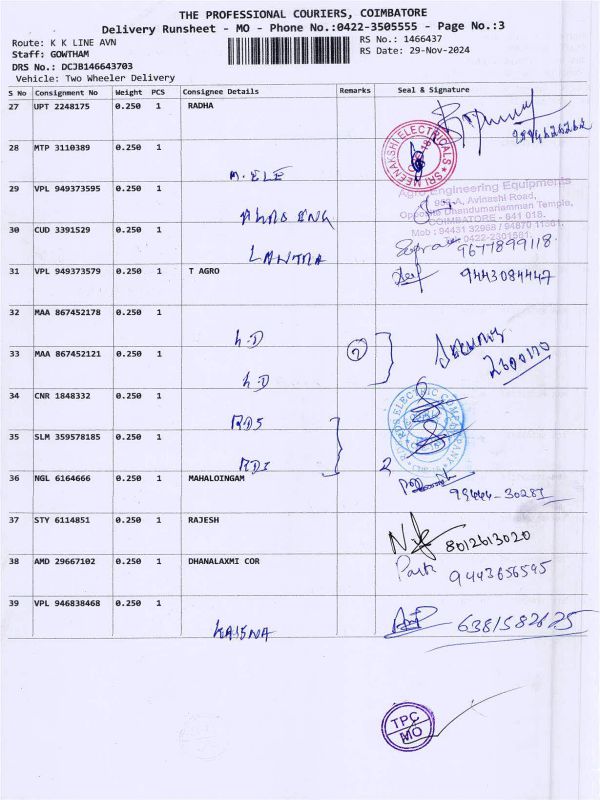 THE PROFESSIONAL COURIERS, COIMBATORE
Delivery Runsheet - MO - Phone No.:0422-3505555 - Page No.:3
Route: K K LINE AVN
RS No.: 1466437
Staff: GOWTHAM
RS Date: 29-Nov-2024
DRS No.: DCJB146643703
Vehicle: Two Wheeler Delivery
S No Consignment No Weight PCS Consignee Details Remarks Seal & Signature
27 UPT 2248175 0.250 1 RADHA
28 MTP 3110389 0.250 1
SRI MEENAKSHI ELECTRICALS
M. ELE
29 VPL 949373595 0.250 1
Agro Engineering Equipments
Avinashi Road,
Opposite Dhandumariamman Temple,
COIMBATORE - 641 018.
Mob : 94431 32968 / 94870 11361
0422-2301561.
30 CUD 3391529 0.250 1
9677899118
LANTRA
31 VPL 949373579 0.250 1 T AGRO
9443084447
32 MAA 867452178 0.250 1
L.D
33 MAA 867452121 0.250 1
2
2600170
L.D
34 CNR 1848332 0.250 1
RDS ELECTRIC COMPANY
RDS
35 SLM 359578185 0.250 1
2
RDI
36 NGL 6164666 0.250 1 MAHALOINGAM
99444-30281
37 STY 6114851 0.250 1 RAJESH
8012613020
38 AMD 29667102 0.250 1 DHANALAXMI COR
9443656595
39 VPL 946838468 0.250 1
6381582625
KRISNA
TPC
MO